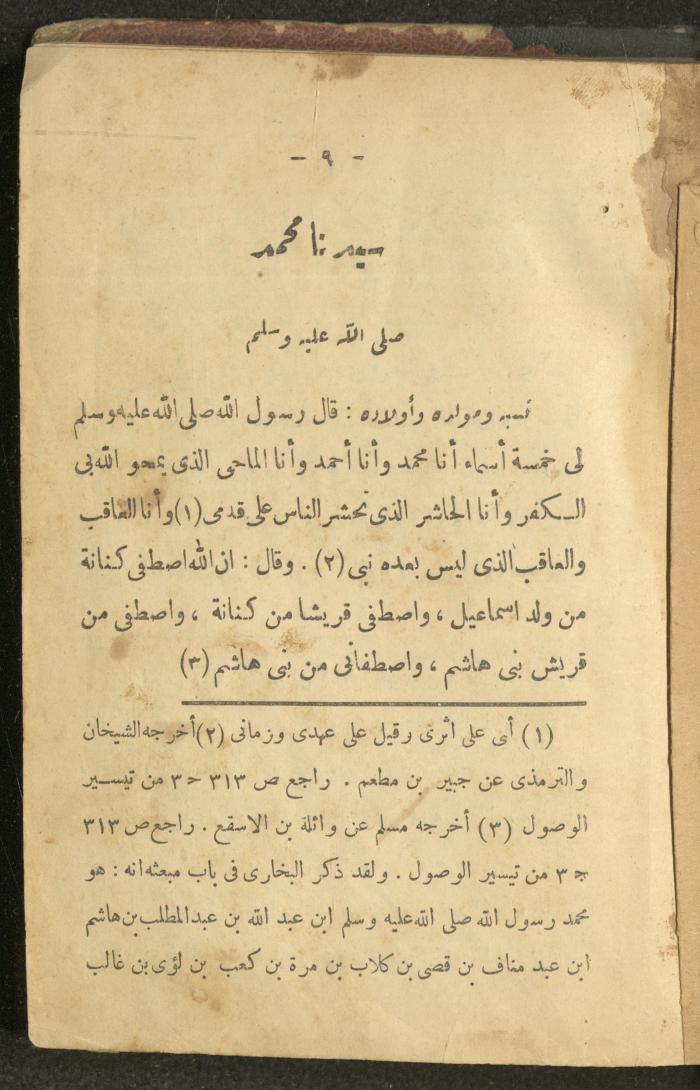 - ٩ -
سيدنا محمد
صلى الله عليه وسلم
نسبه ومولده وأولاده : قال رسول الله صلى الله عليه وسلم
لى خمسة أسماء أنا محمد وأنا أحمد وأنا الماحى الذى يمحو الله بى
الكفر وأنا الحاشر الذى تحشر الناس على قدمى (١) وأنا العاقب
والعاقب الذى ليس بعده نبى (٢) . وقال : ان الله اصطفى كنانة
من ولد اسماعيل ، واصطفى قريشا من كنانة ، واصطفى من
قريش بنى هاشم ، واصطفانى من بنى هاشم (٣)
(١) أى على اثرى وقيل على عهدى وزمانى (٢) أخرجه الشيخان
والترمذى عن جبير بن مطعم . راجع ص ٣١٣ ح ٣ من تيسير
الوصول (٣) أخرجه مسلم عن وائلة بن الاسقع . راجع ص ٣١٣
ج ٣ من تيسير الوصول . ولقد ذكر البخارى فى باب مبعثه انه : هو
محمد رسول الله صلى الله عليه وسلم ابن عبد الله بن عبد المطلب بن هاشم
ابن عبد مناف بن قصى بن كلاب بن مرة بن كعب بن لؤى بن غالب